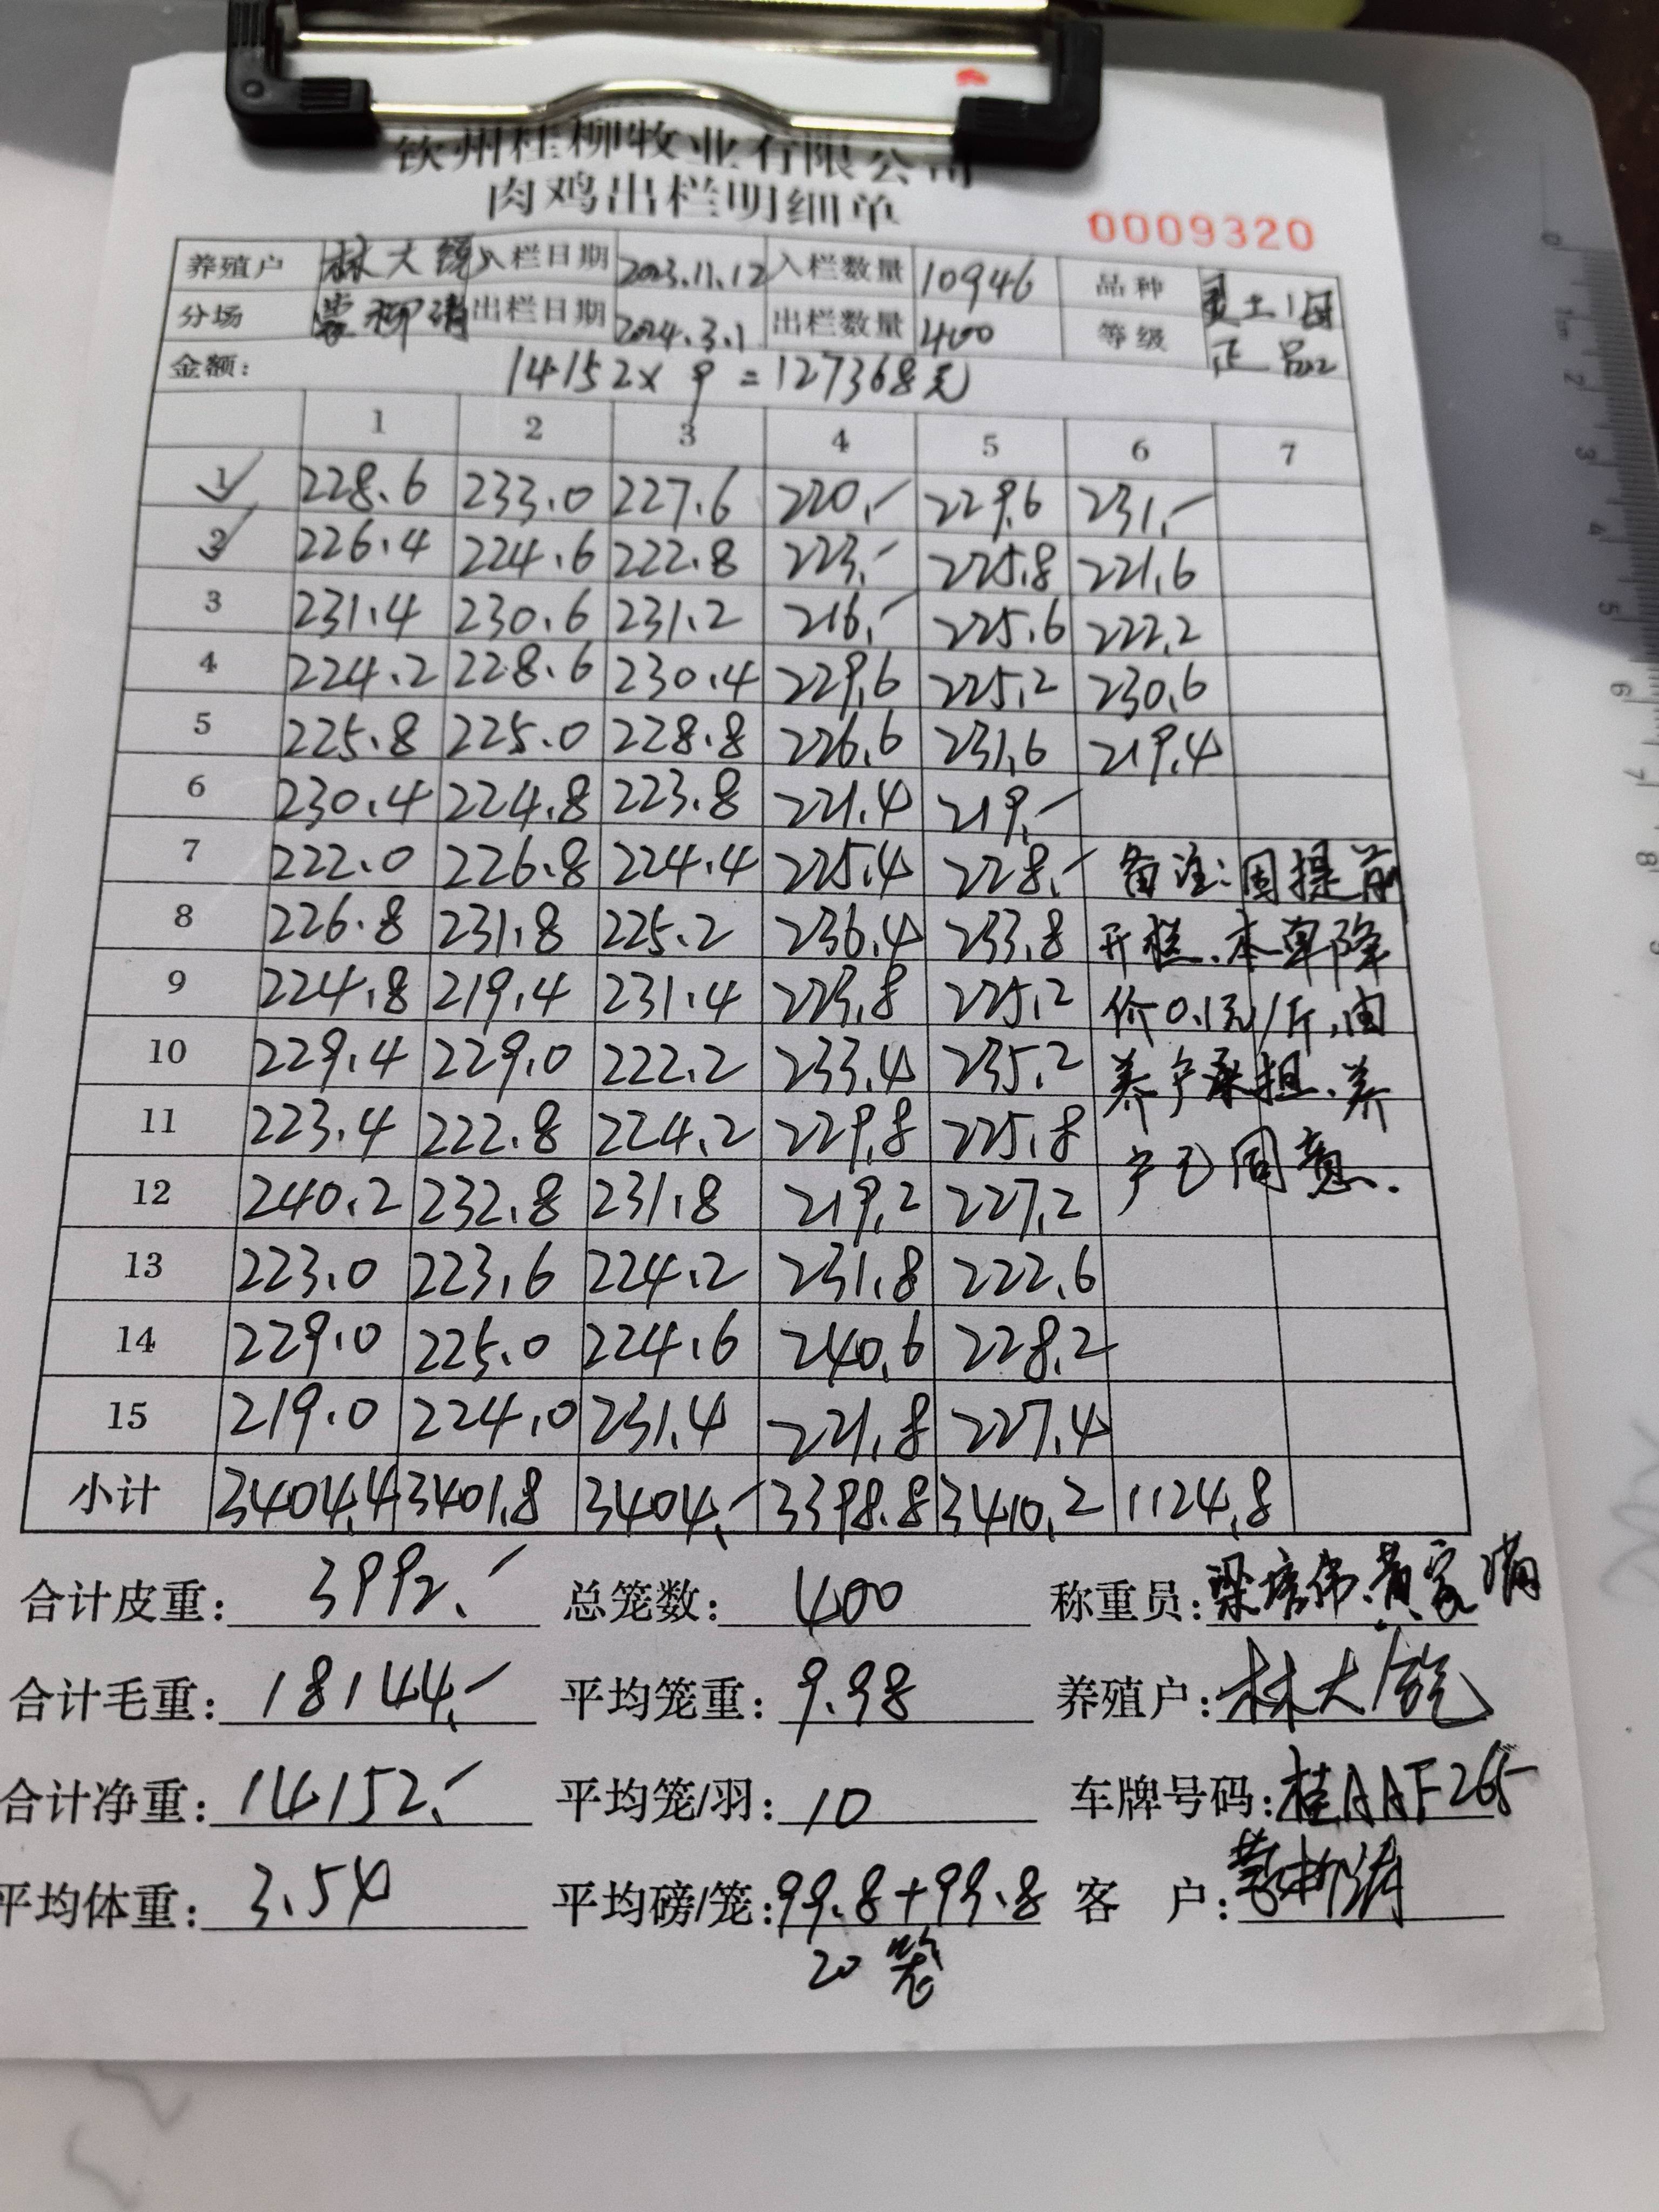 钦州桂柳牧业有限公司
肉鸡出栏明细单
0009320
养殖户 林大 入栏日期 2023.11.12 入栏数量 10946 品种 土1
分场 出栏日期 2024.3.1 出栏数量 400 等级 正品
金额: 14152×9=127368元
1 2 3 4 5 6 7
1 228.6 233.0 227.6 220.- 229.6 231.-
2 226.4 224.6 222.8 223.- 225.8 221.6
3 231.4 230.6 231.2 216.- 225.6 222.2
4 224.2 228.6 230.4 229.6 225.2 230.6
5 225.8 225.0 228.8 226.6 231.6 219.4
6 230.4 224.8 223.8 221.4 219.-
7 222.0 226.8 224.4 225.4 228.- 备注:因提前
8 226.8 231.8 225.2 236.4 233.8 开栏、本车降
9 224.8 219.4 231.4 223.8 225.2 价0.1元/斤,由
10 229.4 229.0 222.2 233.4 235.2 养户承担、养
11 223.4 222.8 224.2 229.8 225.8 户已同意.
12 240.2 232.8 231.8 219.2 227.2
13 223.0 223.6 224.2 231.8 222.6
14 229.0 225.0 224.6 240.6 228.2
15 219.0 224.0 231.4 221.8 227.4
小计 3404.4 3401.8 3404.- 3398.8 3410.2 1124.8
合计皮重: 3992.- 总笼数: 400 称重员: 梁培伟、黄家
合计毛重: 18144.- 平均笼重: 9.98 养殖户: 林大
合计净重: 14152.- 平均笼/羽: 10 车牌号码: 桂AAF265
平均体重: 3.54 平均磅/笼: 99.8+99.8 客 户:
20笼